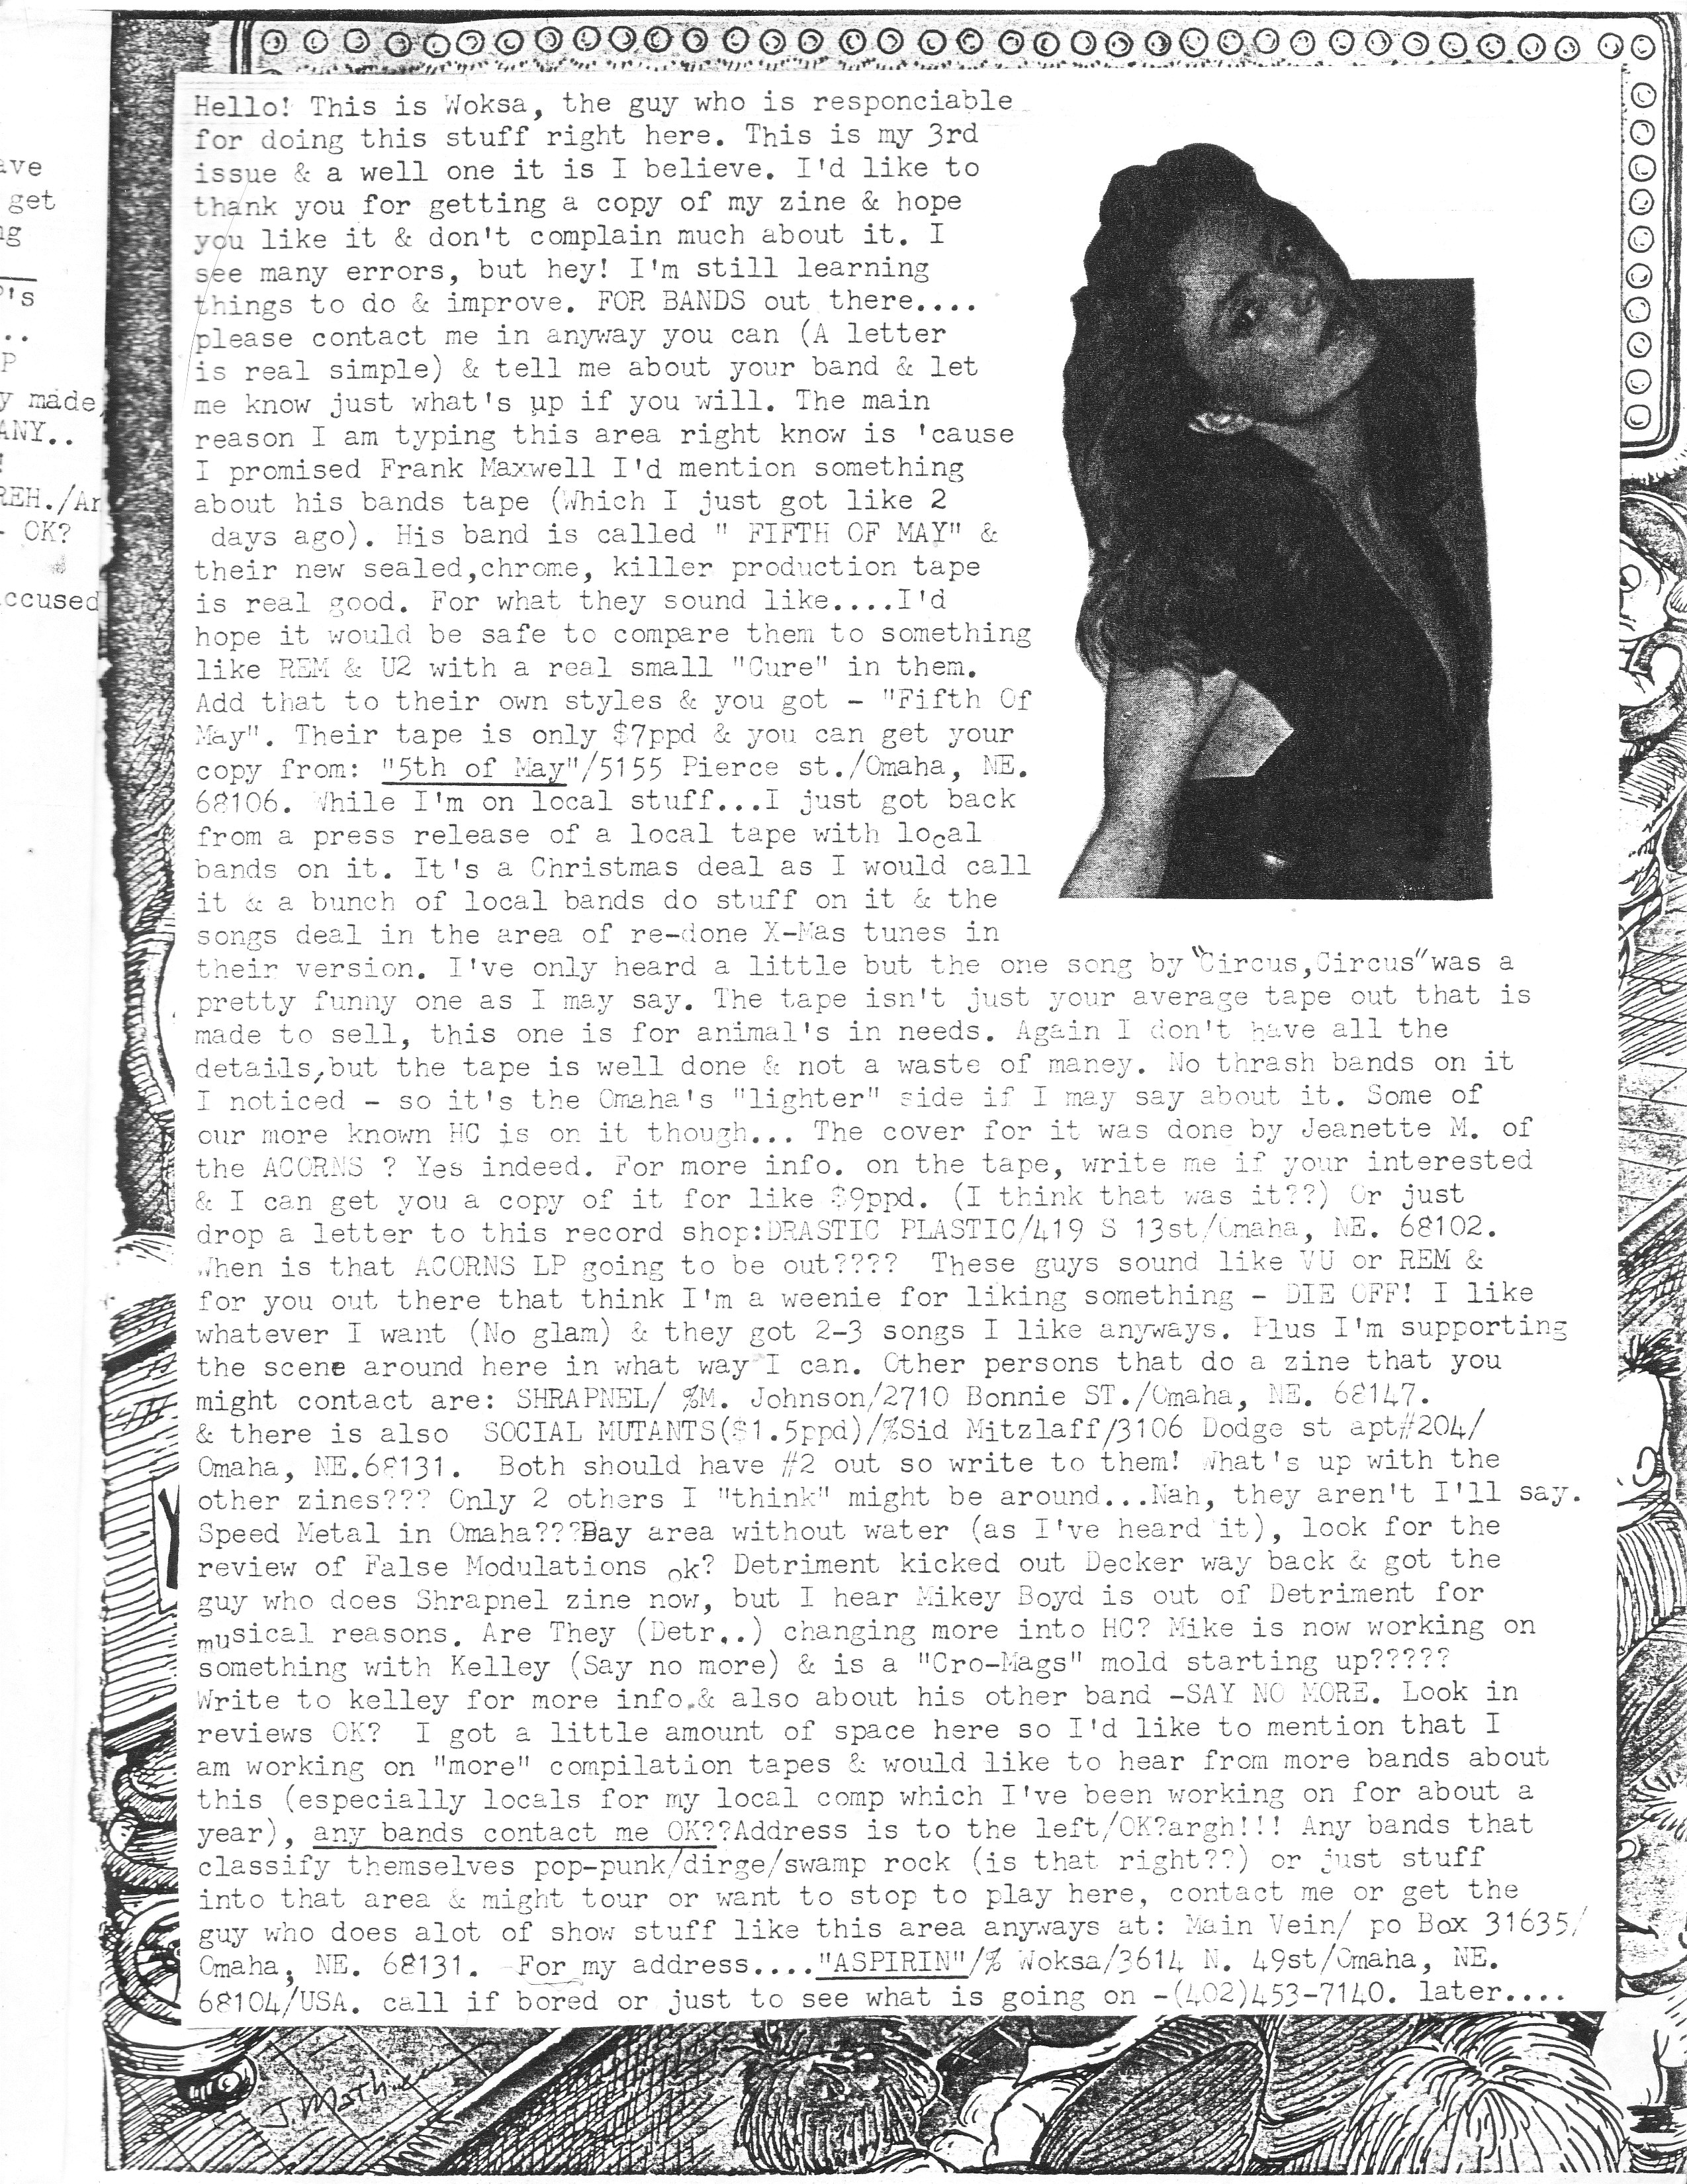 ave
get
ng
P's
..
P
y made,
ANY..
!
REH./Ar
- OK?
ccused
Hello! This is Woksa, the guy who is responciable
for doing this stuff right here. This is my 3rd
issue & a well one it is I believe. I'd like to
thank you for getting a copy of my zine & hope
you like it & don't complain much about it. I
see many errors, but hey! I'm still learning
things to do & improve. FOR BANDS out there....
please contact me in anyway you can (A letter
is real simple) & tell me about your band & let
me know just what's up if you will. The main
reason I am typing this area right know is 'cause
I promised Frank Maxwell I'd mention something
about his bands tape (Which I just got like 2
days ago). His band is called " FIFTH OF MAY" &
their new sealed,chrome, killer production tape
is real good. For what they sound like....I'd
hope it would be safe to compare them to something
like REM & U2 with a real small "Cure" in them.
Add that to their own styles & you got - "Fifth Of
May". Their tape is only $7ppd & you can get your
copy from: "5th of May"/5155 Pierce st./Omaha, NE.
68106. While I'm on local stuff...I just got back
from a press release of a local tape with local
bands on it. It's a Christmas deal as I would call
it & a bunch of local bands do stuff on it & the
songs deal in the area of re-done X-Mas tunes in
their version. I've only heard a little but the one song by "Circus,Circus" was a
pretty funny one as I may say. The tape isn't just your average tape out that is
made to sell, this one is for animal's in needs. Again I don't have all the
details,but the tape is well done & not a waste of maney. No thrash bands on it
I noticed - so it's the Omaha's "lighter" side if I may say about it. Some of
our more known HC is on it though... The cover for it was done by Jeanette M. of
the ACORNS ? Yes indeed. For more info. on the tape, write me if your interested
& I can get you a copy of it for like $9ppd. (I think that was it??) Or just
drop a letter to this record shop:DRASTIC PLASTIC/419 S 13st/Omaha, NE. 68102.
When is that ACORNS LP going to be out???? These guys sound like VU or REM &
for you out there that think I'm a weenie for liking something - DIE OFF! I like
whatever I want (No glam) & they got 2-3 songs I like anyways. Plus I'm supporting
the scene around here in what way I can. Other persons that do a zine that you
might contact are: SHRAPNEL/ %M. Johnson/2710 Bonnie ST./Omaha, NE. 68147.
& there is also SOCIAL MUTANTS($1.5ppd)/%Sid Mitzlaff/3106 Dodge st apt#204/
Omaha, NE.68131. Both should have #2 out so write to them! What's up with the
other zines??? Only 2 others I "think" might be around...Nah, they aren't I'll say.
Speed Metal in Omaha???Bay area without water (as I've heard it), look for the
review of False Modulations ok? Detriment kicked out Decker way back & got the
guy who does Shrapnel zine now, but I hear Mikey Boyd is out of Detriment for
musical reasons. Are They (Detr..) changing more into HC? Mike is now working on
something with Kelley (Say no more) & is a "Cro-Mags" mold starting up?????
Write to kelley for more info.& also about his other band -SAY NO MORE. Look in
reviews OK? I got a little amount of space here so I'd like to mention that I
am working on "more" compilation tapes & would like to hear from more bands about
this (especially locals for my local comp which I've been working on for about a
year), any bands contact me OK??Address is to the left/OK?argh!!! Any bands that
classify themselves pop-punk/dirge/swamp rock (is that right??) or just stuff
into that area & might tour or want to stop to play here, contact me or get the
guy who does alot of show stuff like this area anyways at: Main Vein/ po Box 31635/
Omaha, NE. 68131. For my address...."ASPIRIN"/% Woksa/3614 N. 49st/Omaha, NE.
68104/USA. call if bored or just to see what is going on -(402)453-7140. later....